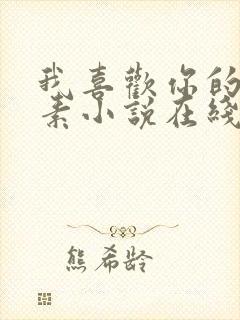 我喜歡你的
素小說在綫
熊希齡